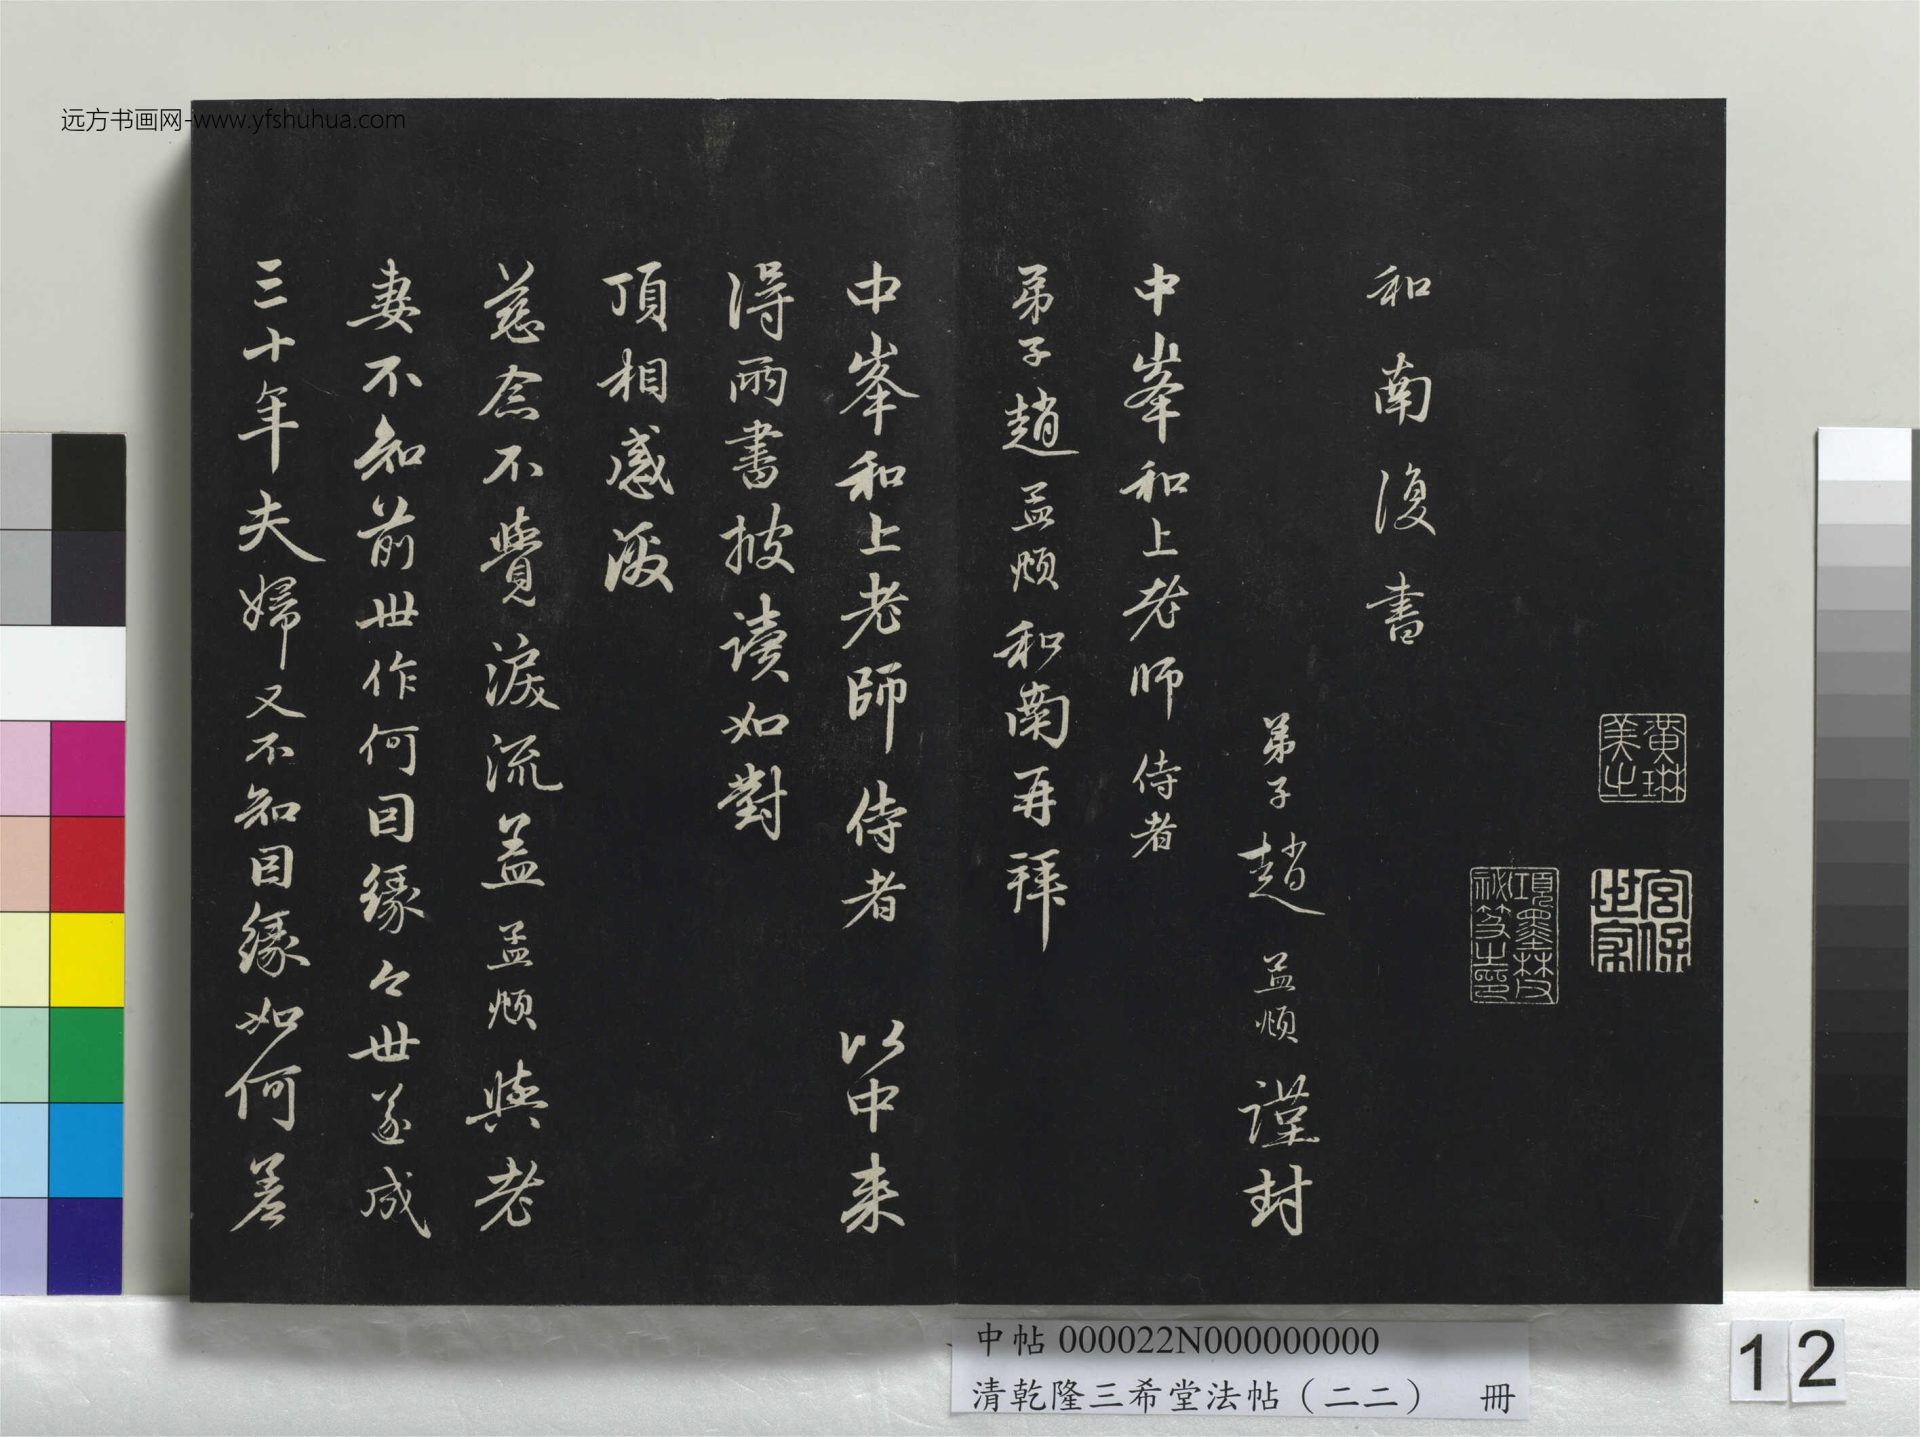 远方书画网-www.yfshuhua.com
黄琳美之
宮保世家
項墨林父祕笈之印
和南復書
弟子趙孟頫謹封
中峯和上老师侍者
弟子趙孟頫和南再拜
中峯和上老師侍者 以中来
得兩書披讀如對
頂相感激
慈念不覺淚流盖孟頫與老
妻不知前世作何因緣々世遂成
三十年夫婦又不知因緣如何差
中帖 000022N000000000
清乾隆三希堂法帖（二二） 冊
12